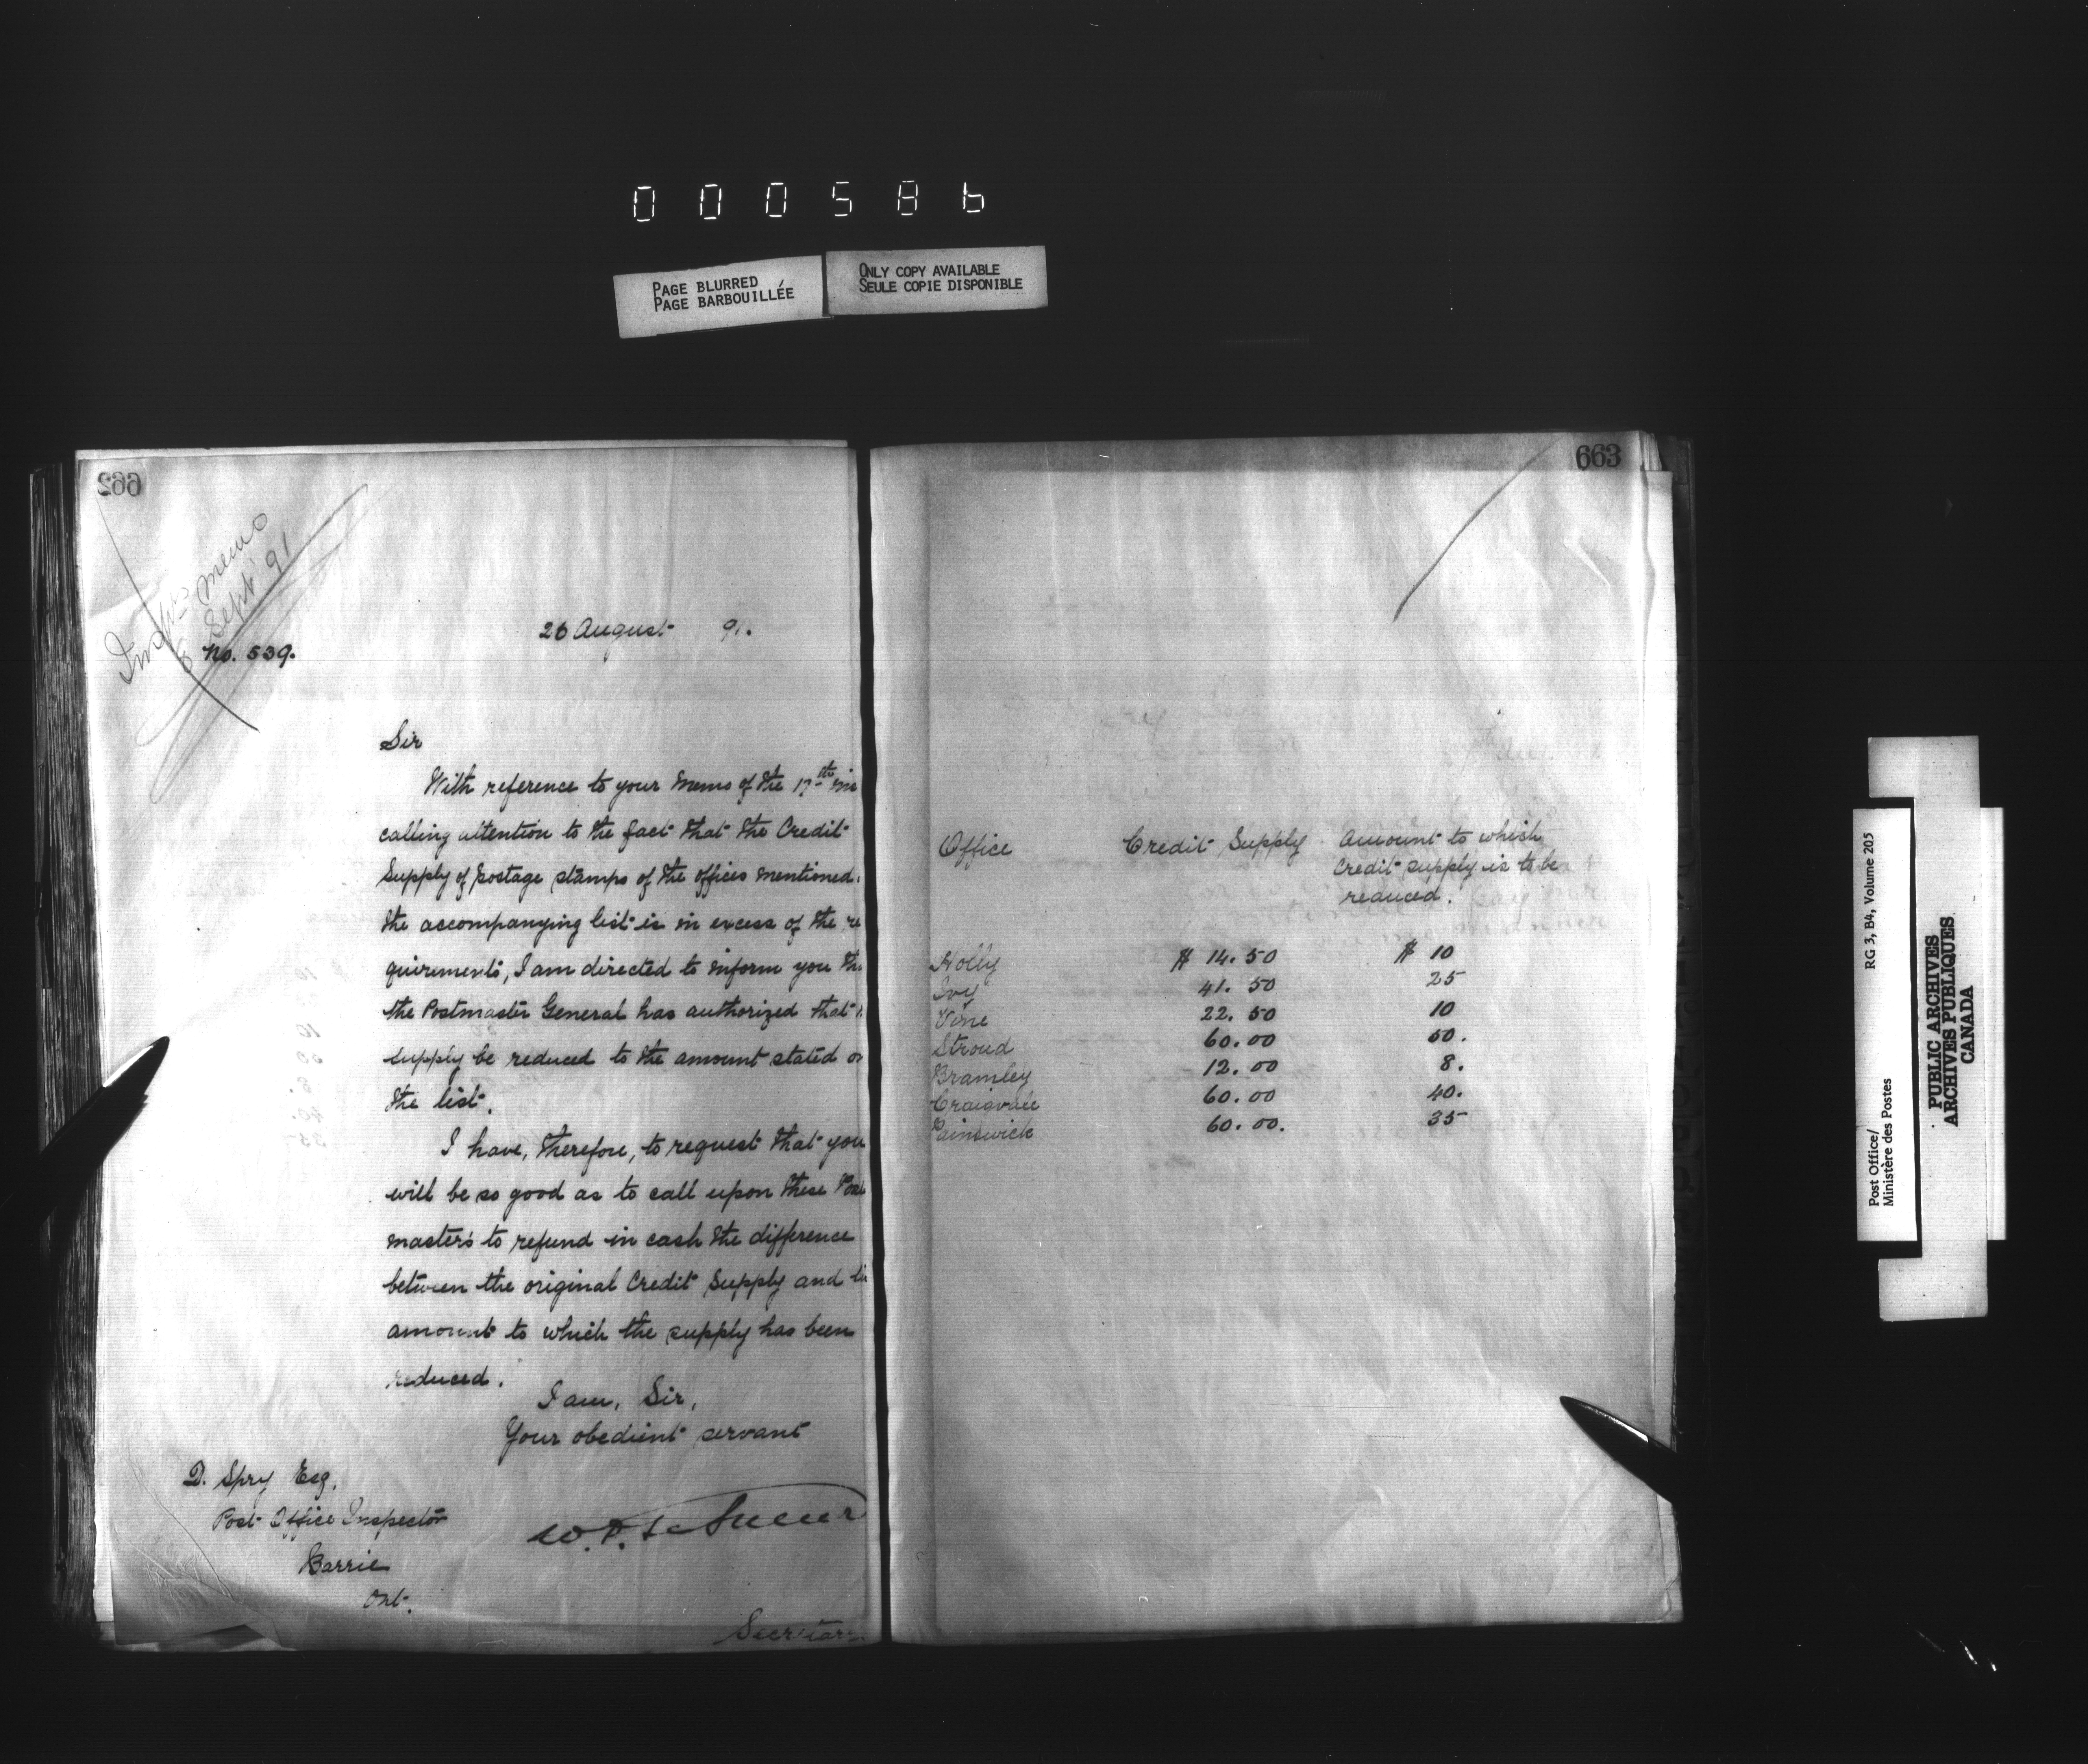 000586
PAGE BLURRED
PAGE BARBOUILLÉE
ONLY COPY AVAILABLE
SEULE COPIE DISPONIBLE
662
memo
8 Sept 91
No. 539.
26 August 91.
Sir
With reference to your memo of the 17th
calling attention to the fact that the Credit
Supply of postage stamps of the offices mentioned
the accompanying list is in excess of the re
quirements, I am directed to inform you
the Postmaster General has authorized that
supply be reduced to the amount stated on
the list.
I have, therefore, to request that you
will be so good as to call upon these Post
masters to refund in cash the difference
between the original Credit Supply and
amount to which the supply has been
reduced.
I am, Sir,
Your obedient servant
W. D. Le Sueur
Secretary
D. Spry Esq.
Post Office Inspector
Barrie
Ont.
663
Office Credit Supply Amount to which
Credit supply is to be
reduced.
Holly $ 14.50 $ 10
Ivy 41.50 25
Vine 22.50 10
Stroud 60.00 50.
Bramley 12.00 8.
Craigvale 60.00 40.
Painswick 60.00. 35
RG 3, B4, Volume 205
Post Office/
Ministère des Postes
PUBLIC ARCHIVES
ARCHIVES PUBLIQUES
CANADA